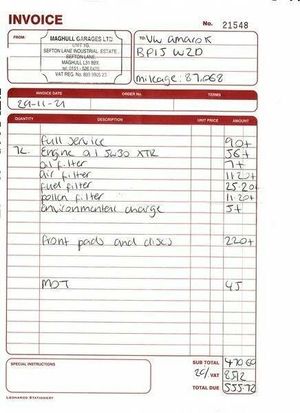 INVOICE
No. 21548
FROM:
MAGHULL GARAGES LTD
UNIT 1G
SEFTON LANE INDUSTRIAL ESTATE
SEFTON LANE
MAGHULL L31 8BX
TO: VW amarok
BP15 WZD
mileage: 87,062
INVOICE DATE ORDER No. TERMS
29-11-21
QUANTITY DESCRIPTION UNIT PRICE AMOUNT
full Service 90+
7L Engine oil 5w30 XTR 56+
oil filter 7+
air filter 11.20+
fuel filter 25.20+
pollen filter 11.20+
environmental charge 5+
front pads and discs 220+
MOT 45
SPECIAL INSTRUCTIONS
SUB TOTAL 470.60
20% VAT 85.12
TOTAL DUE 555.72
LEONARDS STATIONERY